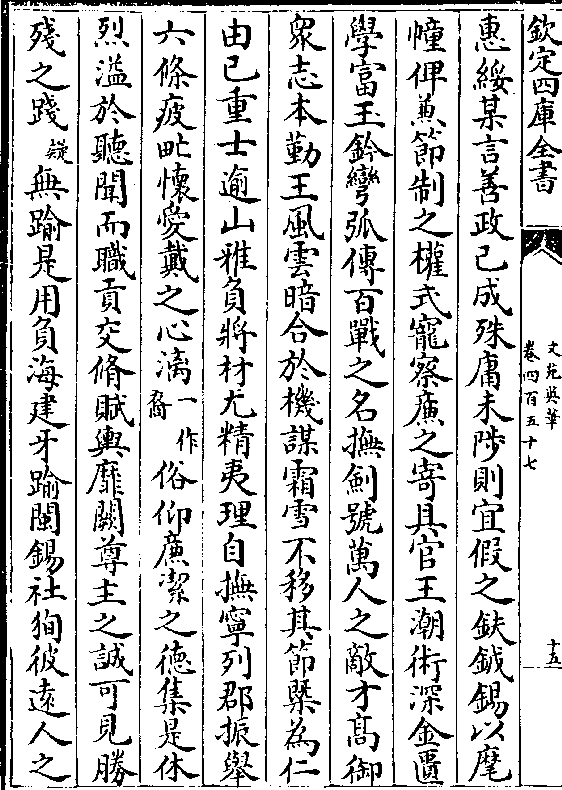 欽定四庫全書
文苑英華
卷四百五十七
十五
惠綏某言善政已成殊庸未陟則宜假之鈇鉞錫以麾
幢俾蕉節制之權式寵察廉之寄具官王潮術深金匱
學富玉鈐彎弧傳百戰之名撫劍號萬人之敵才髙御
衆志本勤王風雲暗合於機謀霜雪不移其節槩為仁
由已重士逾山雅負將材尤精夷理自撫寧列郡振舉
六條疲甿懷愛戴之心漓一作裔俗仰廉潔之徳集是休
烈溢於聽聞而職貢交脩賦輿靡闕尊主之誠可見勝
殘之踐疑無踰是用負海建牙踰閩錫社狥彼遠人之